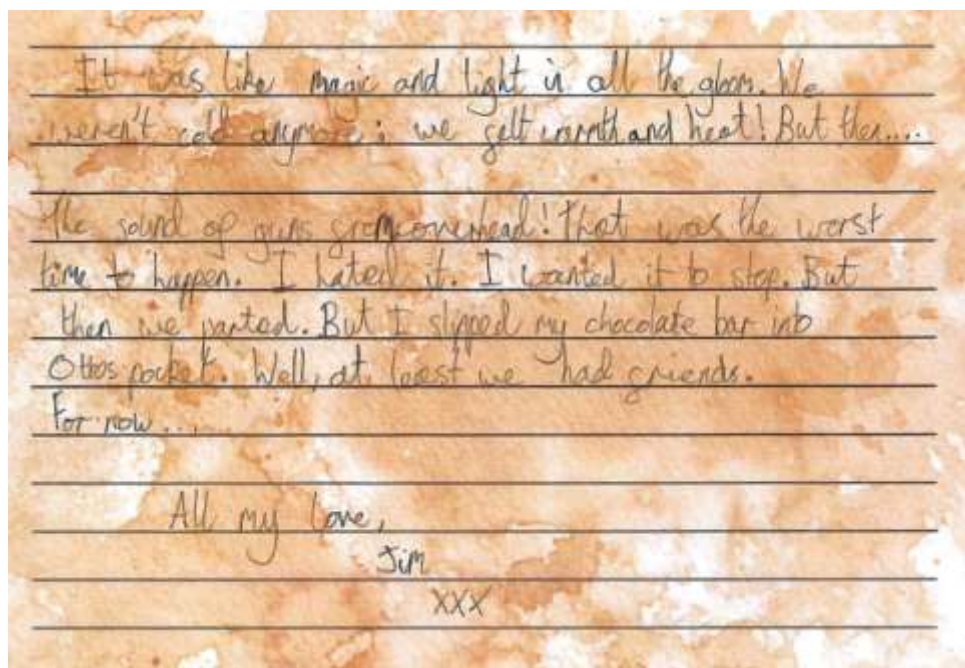 It was like magic and light in all the gloom. We
weren't cold anymore; we felt warmth and heat! But then....
The sound of guns from overhead! That was the worst
time to happen. I hated it. I wanted it to stop. But
then we parted. But I slipped my chocolate bar into
Ottos pocket. Well, at least we had friends.
For now....
All my love,
Jim
XXX